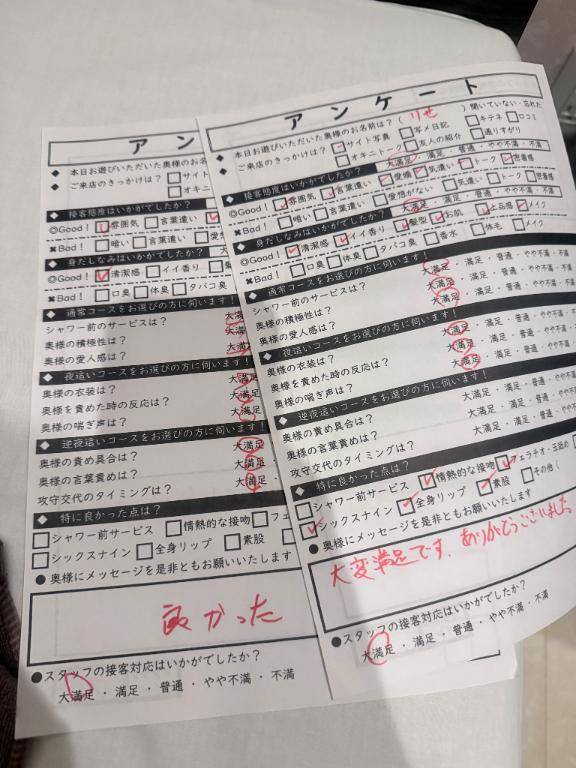 アン
◆ 本日お遊びいただいた奥様のお名
◆ ご来店のきっかけは? サイト
オキニ
◆ 接客態度はいかがでしたか?
◎Good! 雰囲気 言葉遣い
✖Bad! 暗い 言葉遣い 愛
◆ 身だしなみはいかがでしたか?
◎Good! 清潔感 イイ香り
✖Bad! 口臭 体臭 タバコ臭
◆ 通常コースをお選びの方に伺います!
シャワー前のサービスは? 大満
奥様の積極性は? 大満
奥様の愛人感は? 大満
◆ 夜這いコースをお選びの方に伺います!
奥様の衣装は? 大満足
奥様を責めた時の反応は? 大満足
奥様の喘ぎ声は? 大満足
◆ 逆夜這いコースをお選びの方に伺います!
奥様の責め具合は? 大満足
奥様の言葉責めは? 大満足
攻守交代のタイミングは? 大満足
◆ 特に良かった点は?
シャワー前サービス 情熱的な接吻 フェ
シックスナイン 全身リップ 素股
●奥様にメッセージを是非ともお願いいたします
良かった
●スタッフの接客対応はいかがでしたか?
大満足・満足・普通・やや不満・不満
アンケート
◆ 本日お遊びいただいた奥様のお名前は?( りせ )聞いていない・忘れた
◆ ご来店のきっかけは? サイト写真 写メ日記 キテネ 口コミ
オキニトーク 友人の紹介 通りすがり
◆ 接客態度はいかがでしたか? 大満足・満足・普通・やや不満・不満
◎Good! 雰囲気 言葉遣い 愛想 気遣い トーク 密着感
✖Bad! 暗い 言葉遣い 愛想がない 気遣い トーク 密着感
◆ 身だしなみはいかがでしたか? 大満足・満足・普通・やや不満・不満
◎Good! 清潔感 イイ香り 髪型 お肌 上品感 メイク
✖Bad! 口臭 体臭 タバコ臭 香水 体毛 メイク
◆ 通常コースをお選びの方に伺います!
シャワー前のサービスは? 大満足・満足・普通・やや不満・不満
奥様の積極性は? 大満足・満足・普通・やや不満・不
奥様の愛人感は? 大満足・満足・普通・やや不満・
◆ 夜這いコースをお選びの方に伺います!
奥様の衣装は? 大満足・満足・普通・やや不満・不
奥様を責めた時の反応は? 大満足・満足・普通・やや不満
奥様の喘ぎ声は? 大満足・満足・普通・やや不満
◆ 逆夜這いコースをお選びの方に伺います!
奥様の責め具合は? 大満足・満足・普通・やや不
奥様の言葉責めは? 大満足・満足・普通・やや
攻守交代のタイミングは? 大満足・満足・普通・
◆ 特に良かった点は?
シャワー前サービス 情熱的な接吻 フェラチオ・玉舐め
シックスナイン 全身リップ 素股 その他(
●奥様にメッセージを是非ともお願いいたします
大変満足です、ありがとうございました
●スタッフの接客対応はいかがでしたか?
大満足・満足・普通・やや不満・不満